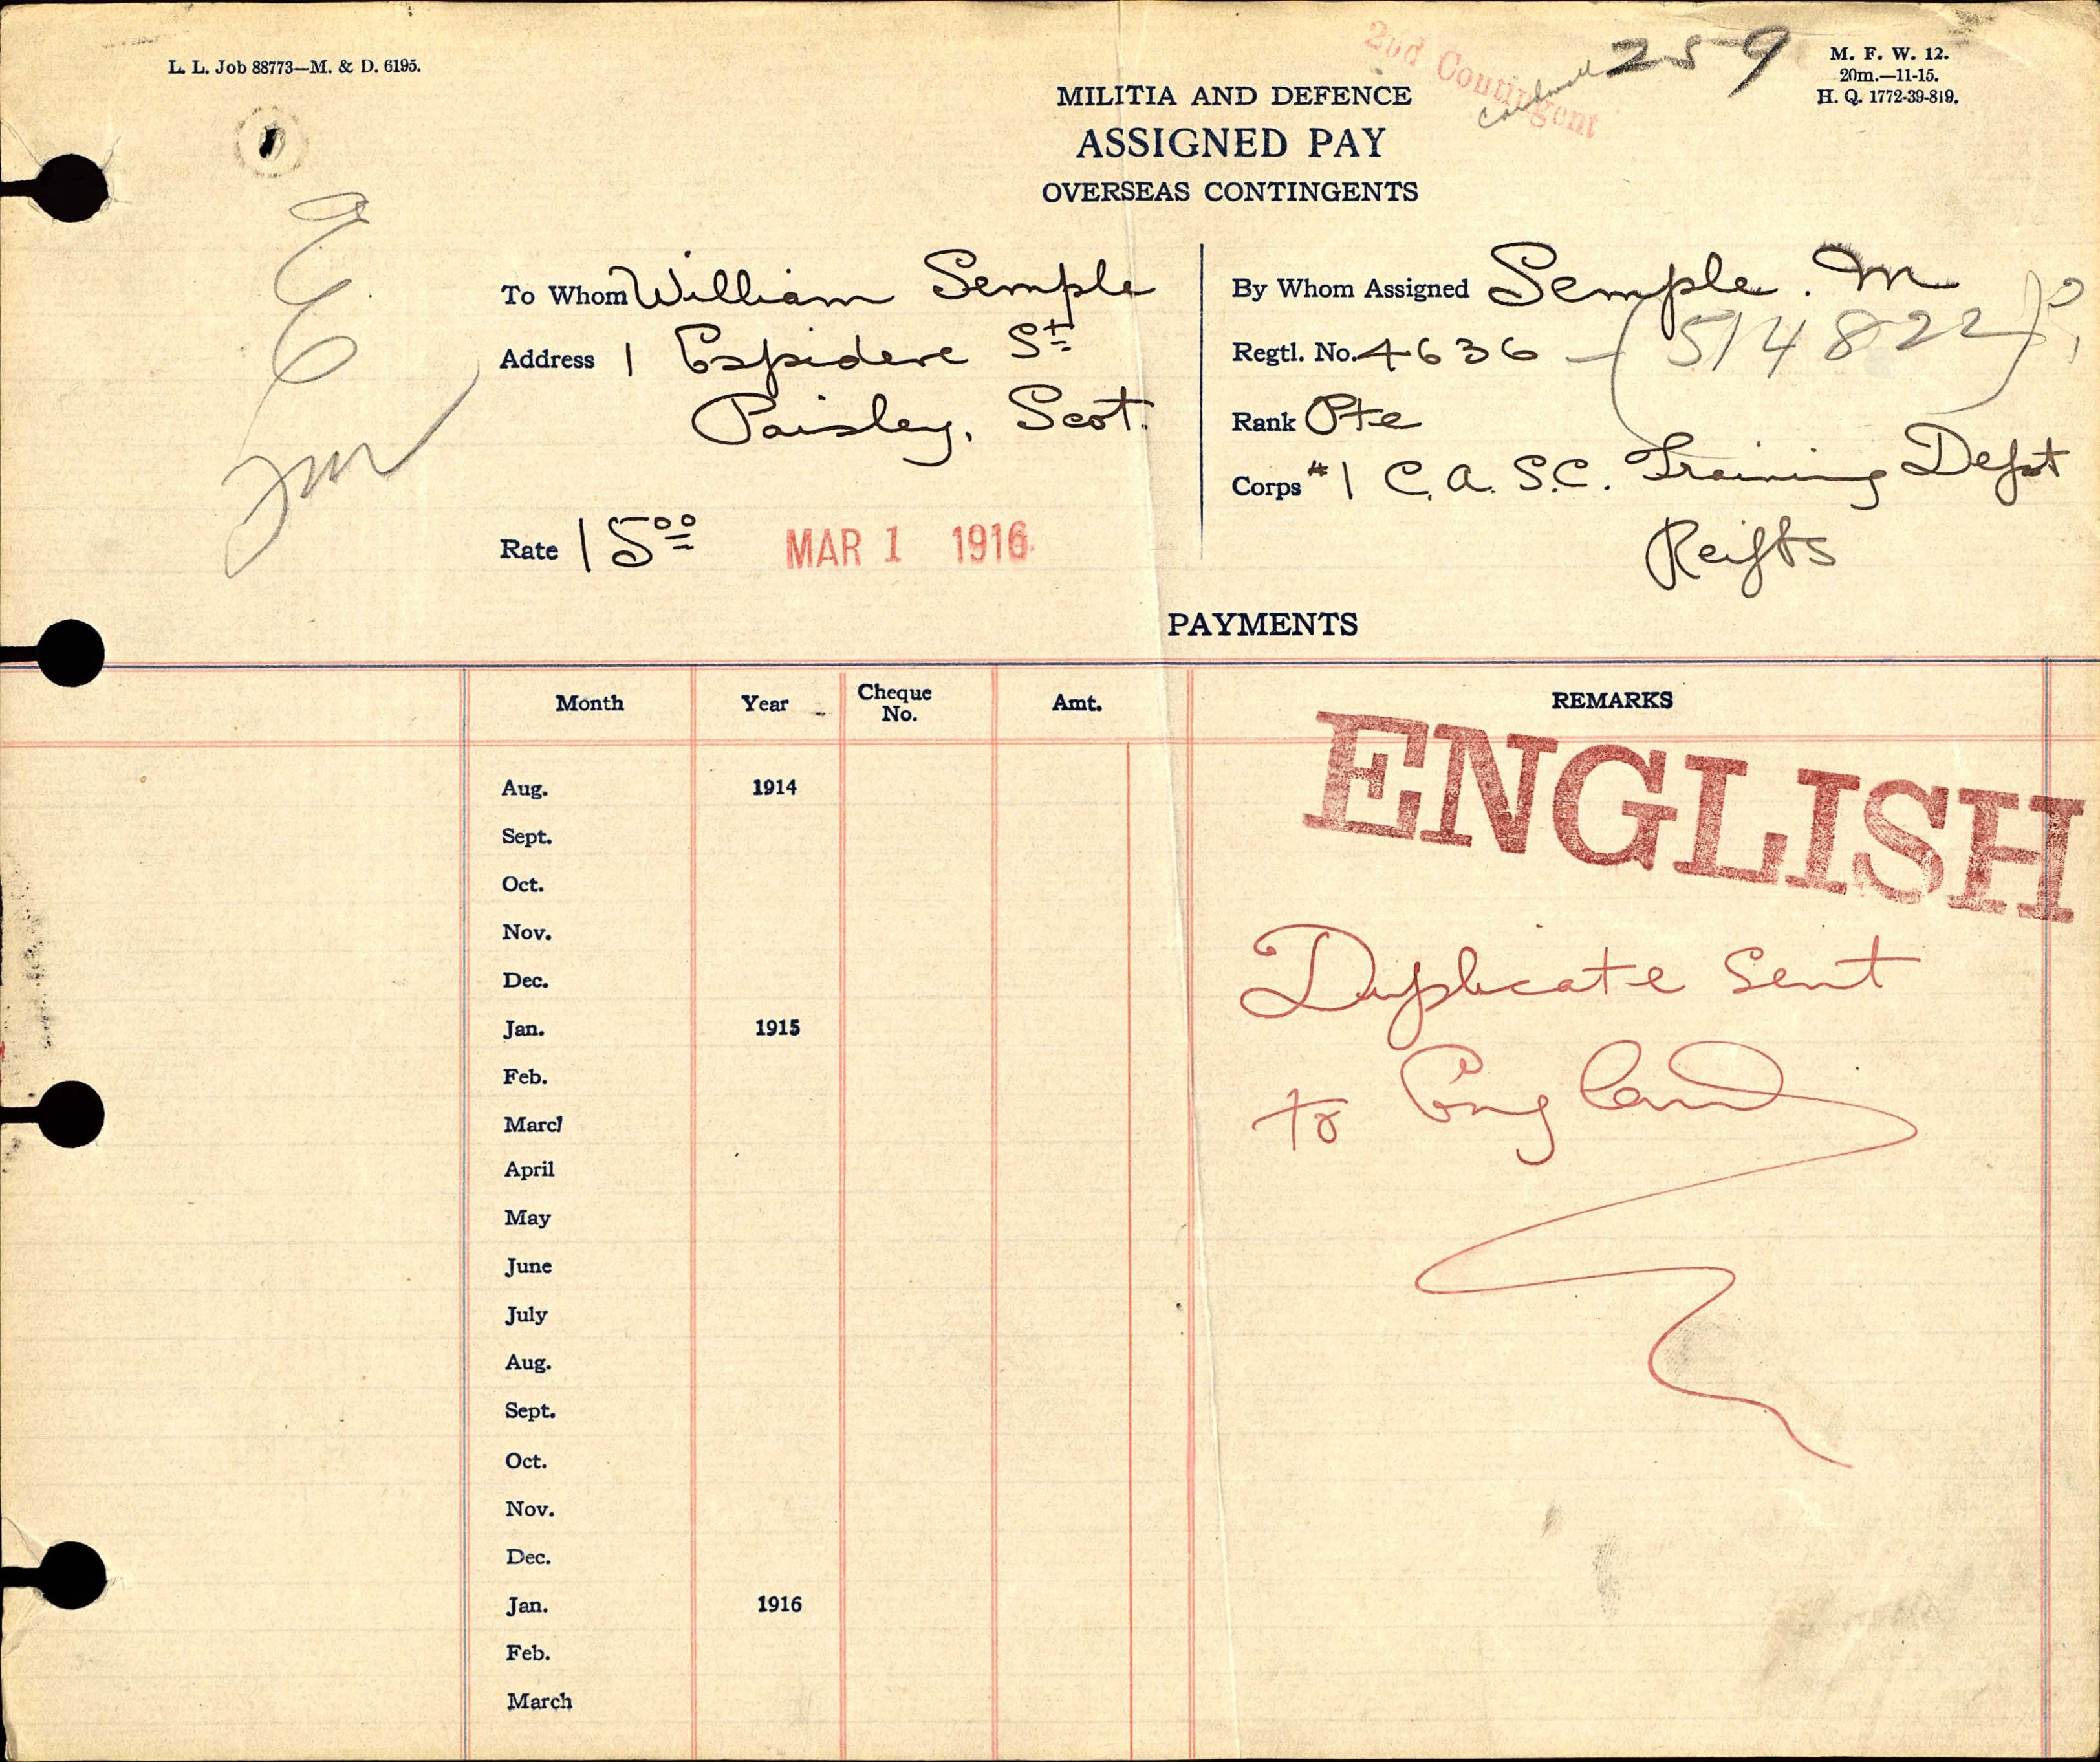 L. L. Job 88773—M. & D. 6195.
2nd Contingent
259
M. F. W. 12.
20m.—11-15.
H. Q. 1772-39-819.
MILITIA AND DEFENCE
ASSIGNED PAY
OVERSEAS CONTINGENTS
To Whom William Semple
Address 1 Espidere St
Paisley, Scot.
Rate 15.00 MAR 1 1916
By Whom Assigned Semple. M
Regtl. No. 4636 - (514822)?
Rank Pte
Corps #1 C.A.S.C. Training Depot
Reifts
PAYMENTS
Month Year Cheque No. Amt. REMARKS
ENGLISH
Aug. 1914
Sept.
Oct.
Nov.
Dec.
Duplicate sent
Jan. 1915
Feb.
to England
March
April
May
June
July
Aug.
Sept.
Oct.
Nov.
Dec.
Jan. 1916
Feb.
March